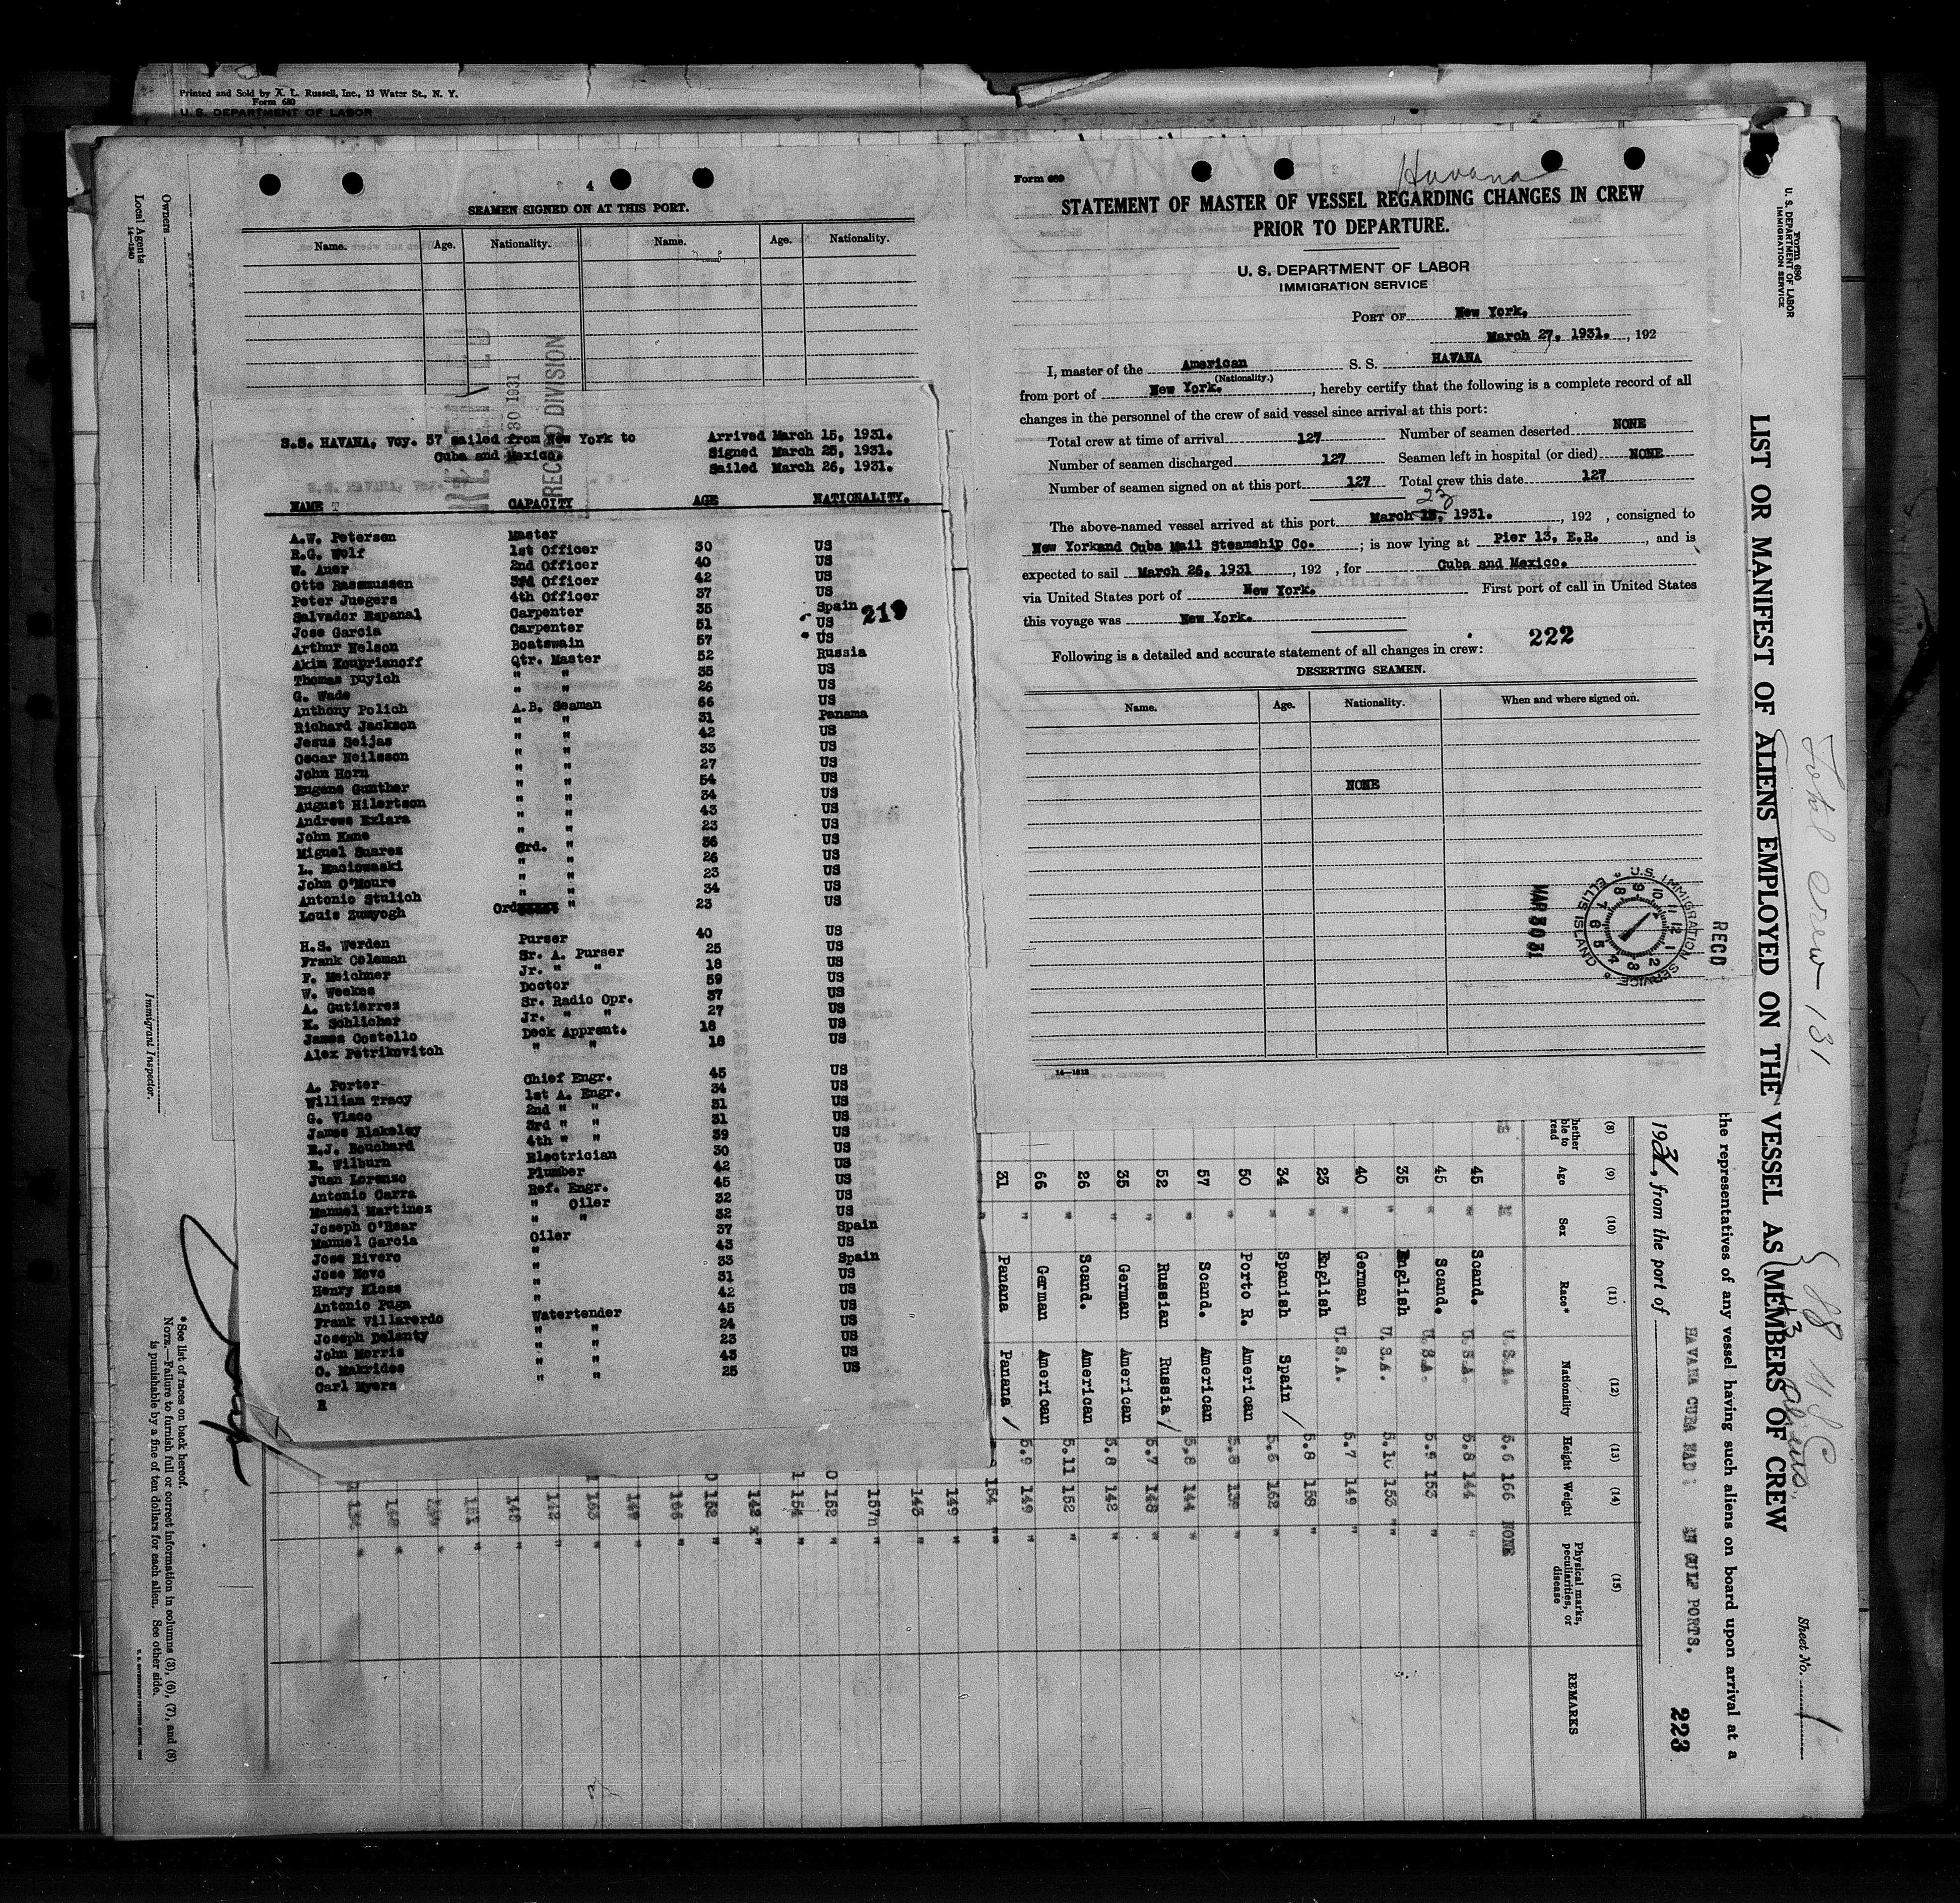 Printed and Sold by A. L. Russell, Inc., 13 Water St., N. Y.
Form 680
U. S. DEPARTMENT OF LABOR
Owners
Local Agents
14—1240
Immigrant Inspector.
4
SEAMEN SIGNED ON AT THIS PORT.
Name. Age. Nationality. Name. Age. Nationality.
30 1931
DIVISION
S.S. HAVANA, Voy. 57 sailed from New York to
Cuba and Mexico.
Arrived March 15, 1931.
Signed March 25, 1931.
Sailed March 26, 1931.
NAME CAPACITY AGE NATIONALITY.
A.W. Petersen Master 30 US
R.G. Wolf 1st Officer 40 US
W. Auer 2nd Officer 42 US
Otto Rasmussen 3rd Officer 37 US
Peter Juegers 4th Officer 35 Spain
Salvador Espanal Carpenter 51 US
Jose Garcia Carpenter 57 US
Arthur Nelson Boatswain 52 Russia
Akim Kouprianoff Qtr. Master 35 US
Thomas Duyich " " 26 US
G. Wade " " 66 US
Anthony Polich A.B. Seaman 31 Panama
Richard Jackson " " 42 US
Jesus Seijas " " 33 US
Oscar Neilsson " " 27 US
John Horn " " 54 US
Eugene Gunther " " 34 US
August Hilertson " " 43 US
Andrews Exlara " " 23 US
John Kane " " 36 US
Miguel Suarez Ord. " 26 US
L. Maciowaski " " 23 US
John O'Moure " " 34 US
Antonio Stulich " " 23 US
Louis Zumyogh Ord "
H.S. Werden Purser 40 US
Frank Coleman Sr. A. Purser 25 US
F. Meichner Jr. " " 18 US
W. Weekes Doctor 59 US
A. Gutierrez Sr. Radio Opr. 37 US
K. Schlicher Jr. " " 27 US
James Costello Deck Apprent. 18 US
Alex Petrikovitch " " 18 US
A. Porter Chief Engr. 45 US
William Tracy 1st A. Engr. 34 US
G. Vlaco 2nd " " 31 US
James Blakeley 3rd " " 31 US
E.J. Bouchard 4th " " 39 US
R. Wilburn Electrician 30 US
Juan Lorenzo Plumber 42 US
Antonio Carra Ref. Engr. 45 US
Manuel Martinez " Oiler 32 US
Joseph O'Rear " " 32 US
Manuel Garcia Oiler 37 Spain
Jose Rivero " 43 US
Jose Novo " 33 Spain
Henry Kloss " 31 US
Antonio Puga " 42 US
Frank Villarerdo Watertender 45 US
Joseph Delanty " " 24 US
John Morris " " 23 US
O. Makrides " " 43 US
Carl Myers " " 25 US
R
219
Form 689
Havana
STATEMENT OF MASTER OF VESSEL REGARDING CHANGES IN CREW
PRIOR TO DEPARTURE.
U. S. DEPARTMENT OF LABOR
IMMIGRATION SERVICE
PORT OF New York.
March 27, 1931. , 192
I, master of the American S. S. HAVANA
(Nationality.)
from port of New York. , hereby certify that the following is a complete record of all
changes in the personnel of the crew of said vessel since arrival at this port:
Total crew at time of arrival 127 Number of seamen deserted NONE
Number of seamen discharged 127 Seamen left in hospital (or died) NONE
Number of seamen signed on at this port 127 Total crew this date 127
23
The above-named vessel arrived at this port March 15, 1931. , 192 , consigned to
New Yorkand Cuba Mail Steamship Co. ; is now lying at Pier 13, E.R. , and is
expected to sail March 26, 1931 , 192 , for Cuba and Mexico.
via United States port of New York. First port of call in United States
this voyage was New York.
222
Following is a detailed and accurate statement of all changes in crew:
DESERTING SEAMEN.
Name. Age. Nationality. When and where signed on.
NONE
14—1613
MAR 30 31
U.S. IMMIGRATION SERVICE ELLIS ISLAND
RECD
Form 680
U. S. DEPARTMENT OF LABOR
IMMIGRATION SERVICE
LIST OR MANIFEST OF ALIENS EMPLOYED ON THE VESSEL AS MEMBERS OF CREW
Total crew 131
88 U S C
43 Aliens
Sheet No. 1
the representatives of any vessel having such aliens on board upon arrival at a
1931, from the port of HAVANA CUBA IN GULF PORTS.
223
(8) (9) (10) (11) (12) (13) (14) (15)
Age Sex Race* Nationality Height Weight Physical marks, peculiarities, or disease REMARKS
U.S.A. 5.6 166 NONE
45 M Scand. U.S.A. 5.8 144 "
45 " Scand. U.S.A. 5.9 153 "
35 " English U.S.A. 5.10 153 "
40 " German U.S.A. 5.7 149 "
23 " English 5.8 158 "
34 " Spanish Spain 5.5 152 "
50 " Porto R. American 5.8 "
57 " Scand. American 5.8 144 "
52 " Russian Russia 5.7 148 "
35 " German American 5.8 142 "
26 " Scand. American 5.11 152 "
66 " German American 5.9 149 "
31 " Panana Panana 154 "
149 "
143 "
157 "
152 "
154 "
142 x "
152 "
*See list of races on back hereof.
NOTE.—Failure to furnish full or correct information in columns (3), (6), (7), and (8)
is punishable by a fine of ten dollars for each alien. See other side.